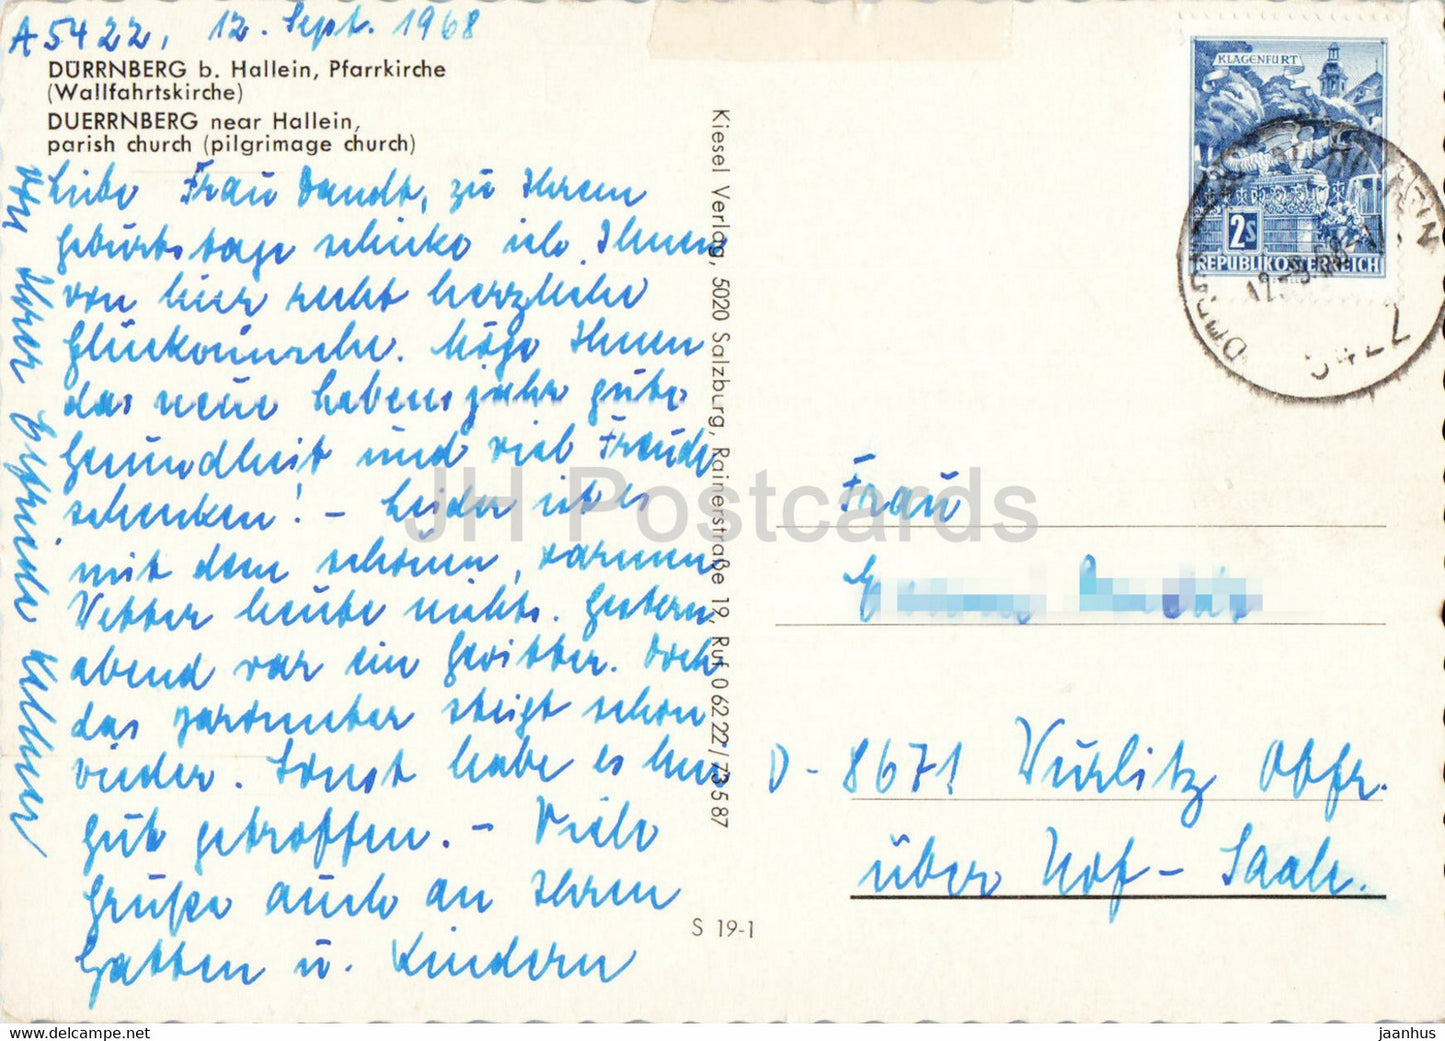 A 5422, 12. Sept. 1968
DÜRRNBERG b. Hallein, Pfarrkirche
(Wallfahrtskirche)
DUERRNBERG near Hallein,
parish church (pilgrimage church)
Liebe Frau Dandt, zu Ihrem
Geburtstage schicke ich Ihnen
von hier recht herzliche
Glückwünsche. Möge Ihnen
das neue Lebensjahr gute
Gesundheit und viel Freude
schenken! – Leider ist es
mit dem schönen, warmen
Wetter heute nichts. Gestern
abend war ein Gewitter. Doch
das Barometer steigt schon
wieder. Sonst habe es hier
gut getroffen. – Viele
Grüße auch an Ihren
Gatten u. Kindern
von Ihrer
Kiesel Verlag, 5020 Salzburg, Rainerstraße 19, Ruf 0 62 22 / 73 5 87
S 19-1
KLAGENFURT
2S
REPUBLIK ÖSTERREICH
5422
Frau
D - 8671 Wurlitz Obfr.
über Hof - Saale.
JH Postcards
www.delcampe.net
jaanhus